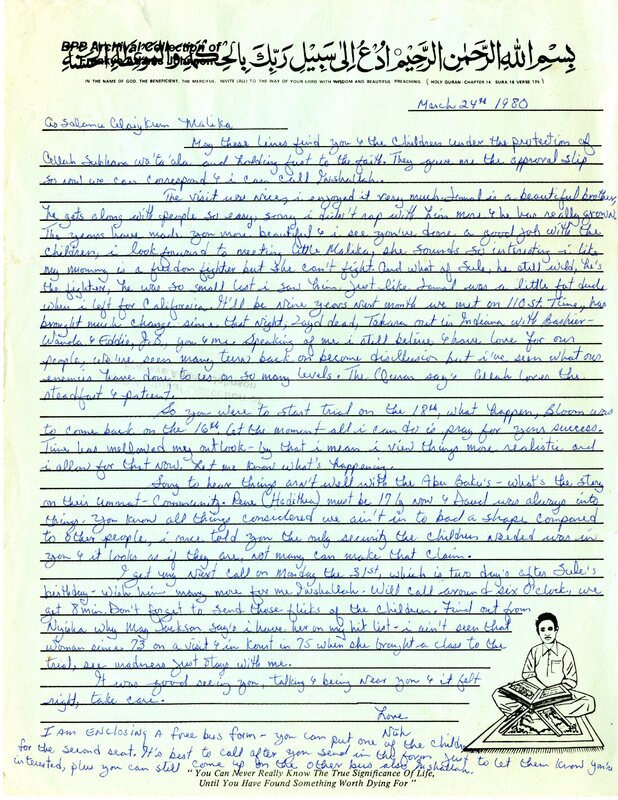 BPB Archival Collection of
بِسْمِ اللهِ الرَّحْمٰنِ الرَّحِيْمِ اُدْعُ اِلىٰ سَبِيْلِ رَبِّكَ
IN THE NAME OF GOD, THE BENEFICIENT, THE MERCIFUL. INVITE (ALL) TO THE WAY OF YOUR LORD WITH WISDOM AND BEAUTIFUL PREACHING. ( HOLY QURAN - CHAPTER 14, SURA 16 VERSE 125.)
March 24th 1980
As Salamu Alaiykum Malika
May these lines find you & the children under the protection of
Allah Subhana wa'ta'ala and holding fast to the faith. They gave me the approval slip
so now we can correspond & i can call Inshallah.
The visit was nice, i enjoyed it very much. Jamal is a beautiful brother,
he gets along with people so easy, sorry i didn't rap with him more & he has really grown.
The years have made you more beautiful & i see you've done a good job with the
children, i look forward to meeting little Malika, she sounds so interesting - i like
my mommy is a freedom fighter but she can't fight. And what of Sule, he still wild, he's
the fighter, he was so small last i saw him, just like Jamal was a little fat dude
when i left for California. It'll be nine years next month we met on 110 St. Time, has
brought much change since that night, Zayd dead, out in Indiana with Basheer-
Wanda & Eddie, you & me. Speaking of me i still believe & have love for our
people, we've seen many turn back or become disillusion but i've seen what our
enemies have done to us on so many levels. The Quran says Allah loves the
steadfast & patient.
So you were to start trial on the 18th, what happen, Bloom was
to come back on the 16th. At the moment all i can do is pray for your success.
Time has mellowed my outlook - by that i mean i view things more realistic and
i allow for that now. Let me know what's happening.
Sorry to hear things ain't well with the Abu Bakr's - what's the story
on their Ummat - Community. (Hadithea) must be 17 by now & Daud was always into
things. You know all things considered we ain't in to bad a shape compared
to other people, i once told you the only security the children needed was in
you & it looks as if they are, not many can make that claim.
I get my next call on Monday the 31st, which is two day's after Sule's
birthday - wish him many more for me Inshallah. Will call around six O'clock, we
get 8 min. Don't forget to send those flicks of the children. Find out from
why Jackson say's i have her on my hit list - i ain't seen that
woman since 73 on a visit & in kourt in 75 when she brought a class to the
trial, see madness just stays with me.
It was good seeing you, talking & being near you & it felt
right, take care.
Love
Nuh
I AM ENCLOSING A free bus form - you can put one of the children
for the second seat. It's best to call after you send in the form, just to let them know you're
interested, plus you can still come up on the other bus also Inshallah.
" You Can Never Really Know The True Significance Of Life,
Until You Have Found Something Worth Dying For "